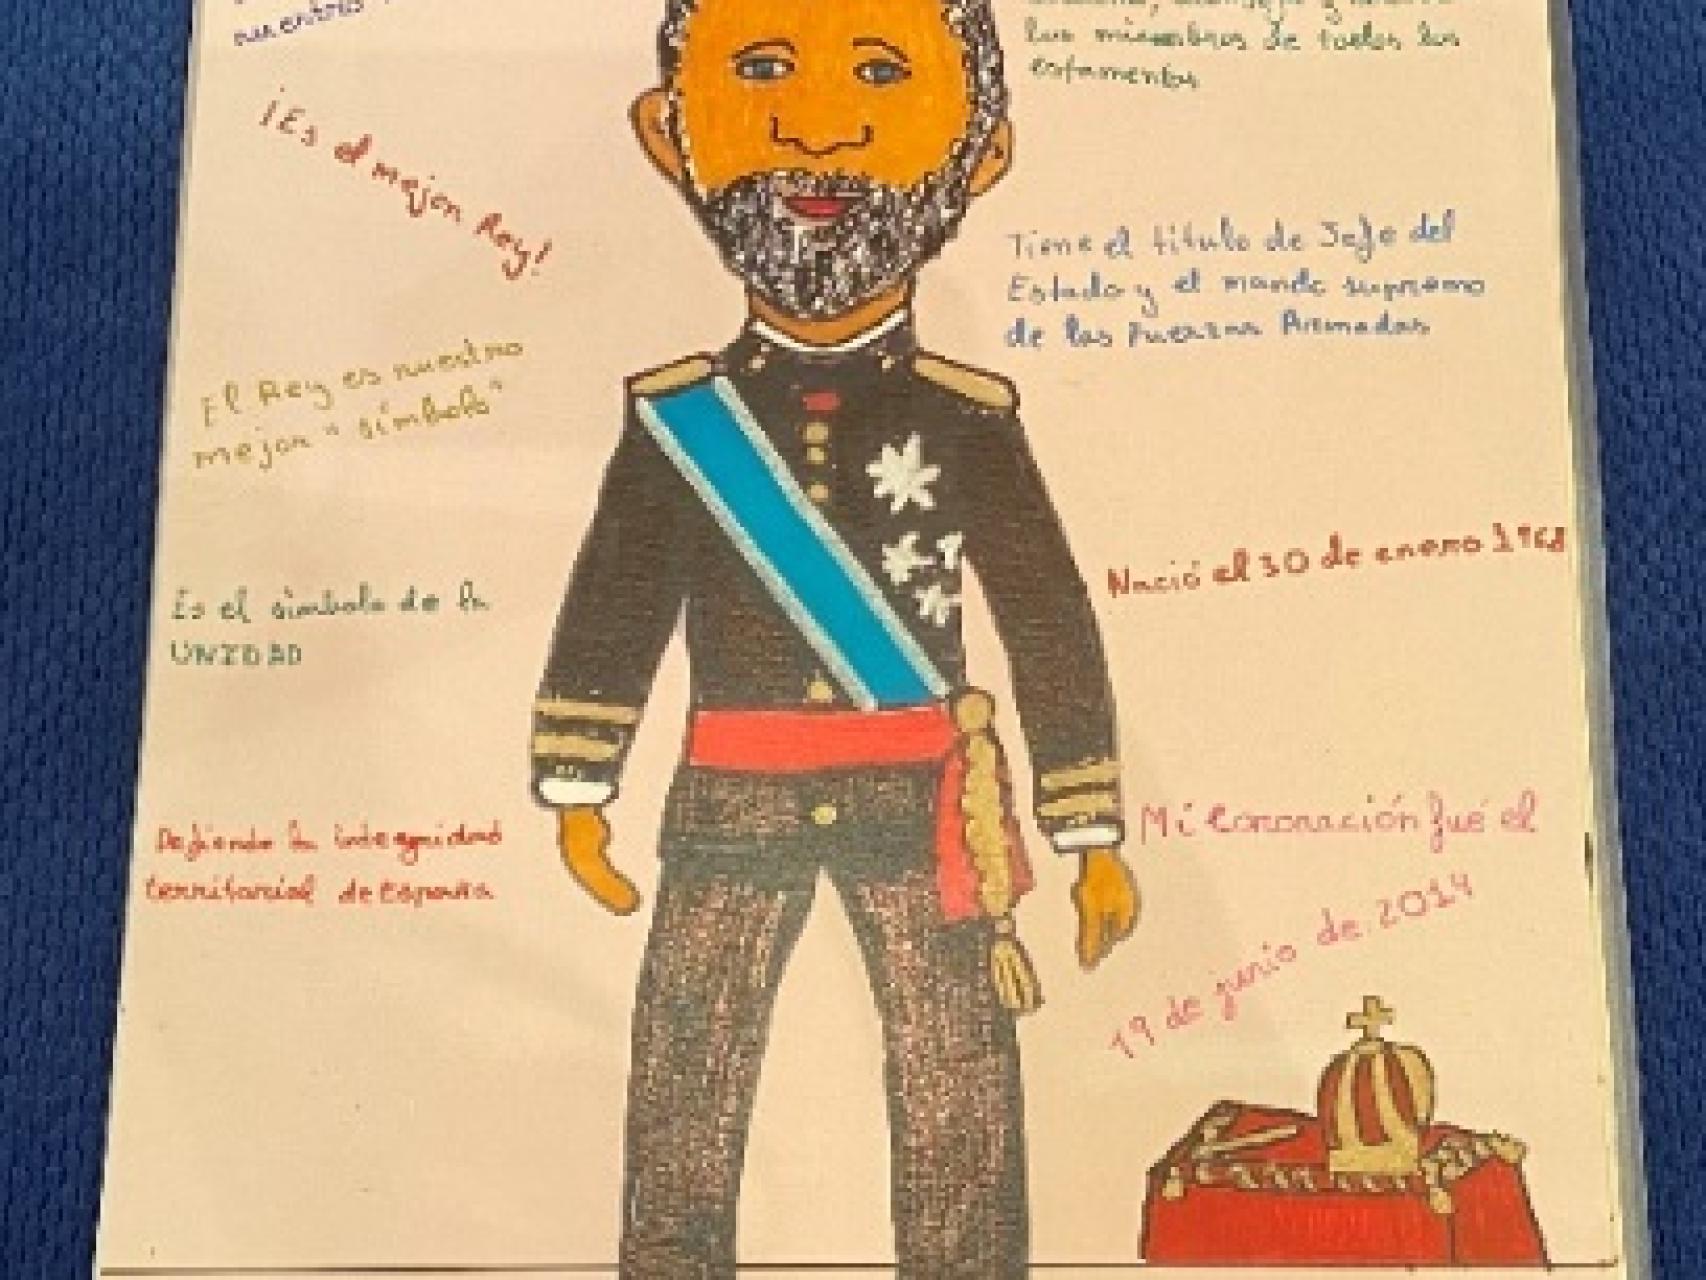 nuestro
los miembros de todos los
estamentos
¡Es el mejor Rey!
Tiene el título de Jefe del
Estado y el mando supremo
de las Fuerzas Armadas
El Rey es nuestro
mejor "símbolo"
Nació el 30 de enero 1968
Es el símbolo de la
UNIDAD
Defiende la integridad
territorial de España
Mi Coronación fué el
19 de junio de 2014